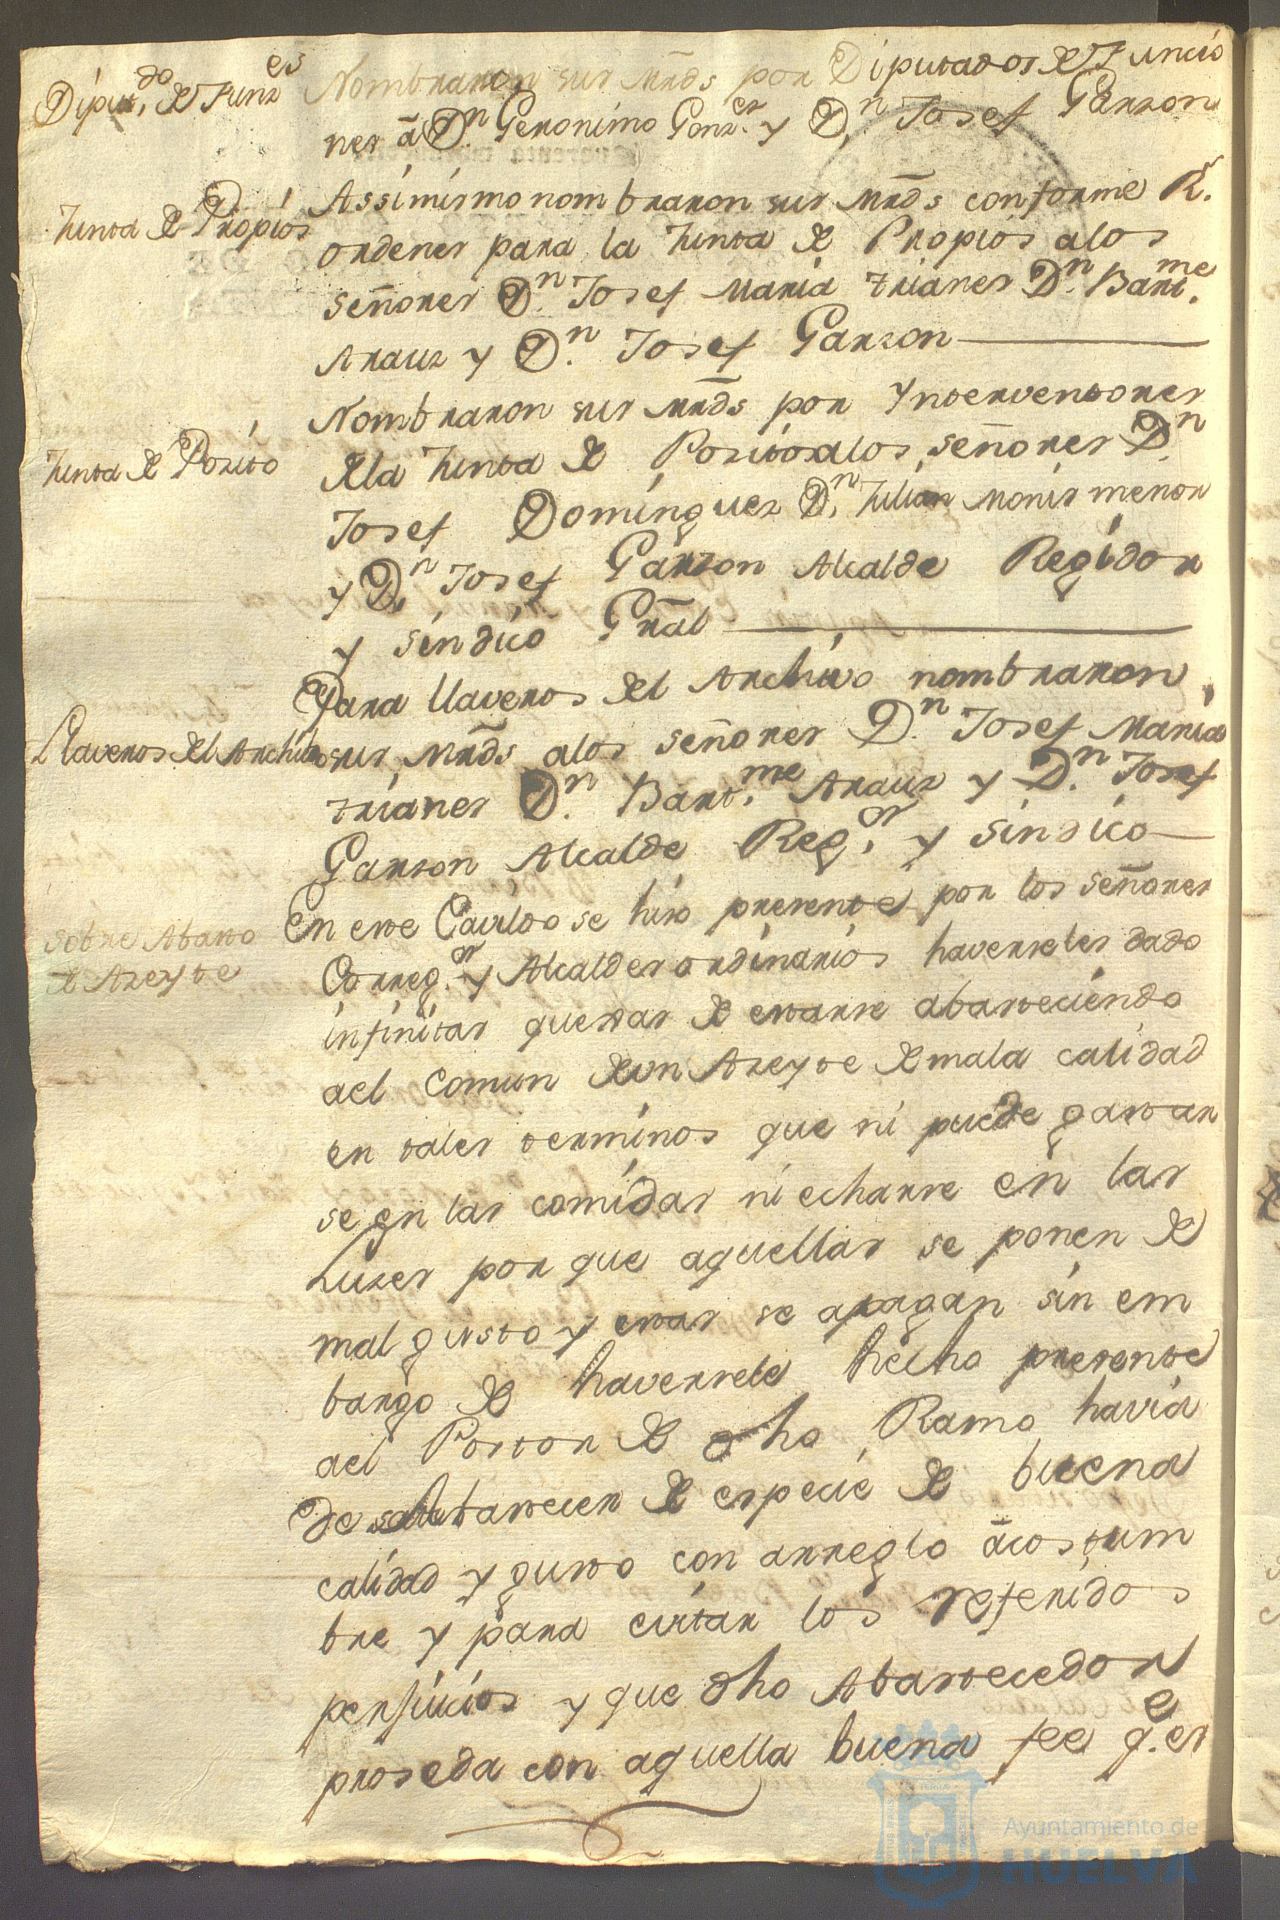 Diput.do de Funz.es
Nombraron sus mrds por Diputados de Funcio
nes a Dn. Geronimo Gonz.es y Dn. Josef Garzon
Junta de Propios
Assimismo nombraron sus mrds conforme Rs.
ordenes para la Junta de Propios alos
señores Dn. Josef Maria Trianes Dn. Bart.me
Arauz y Dn. Josef Garzon
Junta de Posito
Nombraron sus mrds por Ynterventores
dela Junta de Positos alos señores Dn.
Josef Dominguez Dn. Julian Monis menor
y Dn. Josef Garzon Alcalde Regidor
y sindico Gral
Llaveros del Archibo
Para llaveros del Archivo nombraron
sus mrds alos señores Dn. Josef Maria
trianes Dn. Bart.me Arauz y Dn. Josef
Garzon Alcalde Reg.or y sindico
Sobre Abasto
de Azeyte
En este Cavildo se hizo presente por los señores
Correg.or y Alcaldes ordinarios haverseles dado
infinitas quexas de estarse abasteciendo
ael Comun deun Azeyte de mala calidad
en tales terminos que ni puede gastar
se en las comidas ni echarse en las
Luzes por que aquellas se ponen de
mal gusto y estas se apagan sin em
bargo de haversele hecho presente
ael Postor de dho Ramo havia
de abastecer de especie de buena
calidad y gusto con arreglo a costum
bre y para evitar los referidos
perjuicios y que dho Abastecedor
proseda con aquella buena fee q.e es
Ayuntamiento de
HUELVA